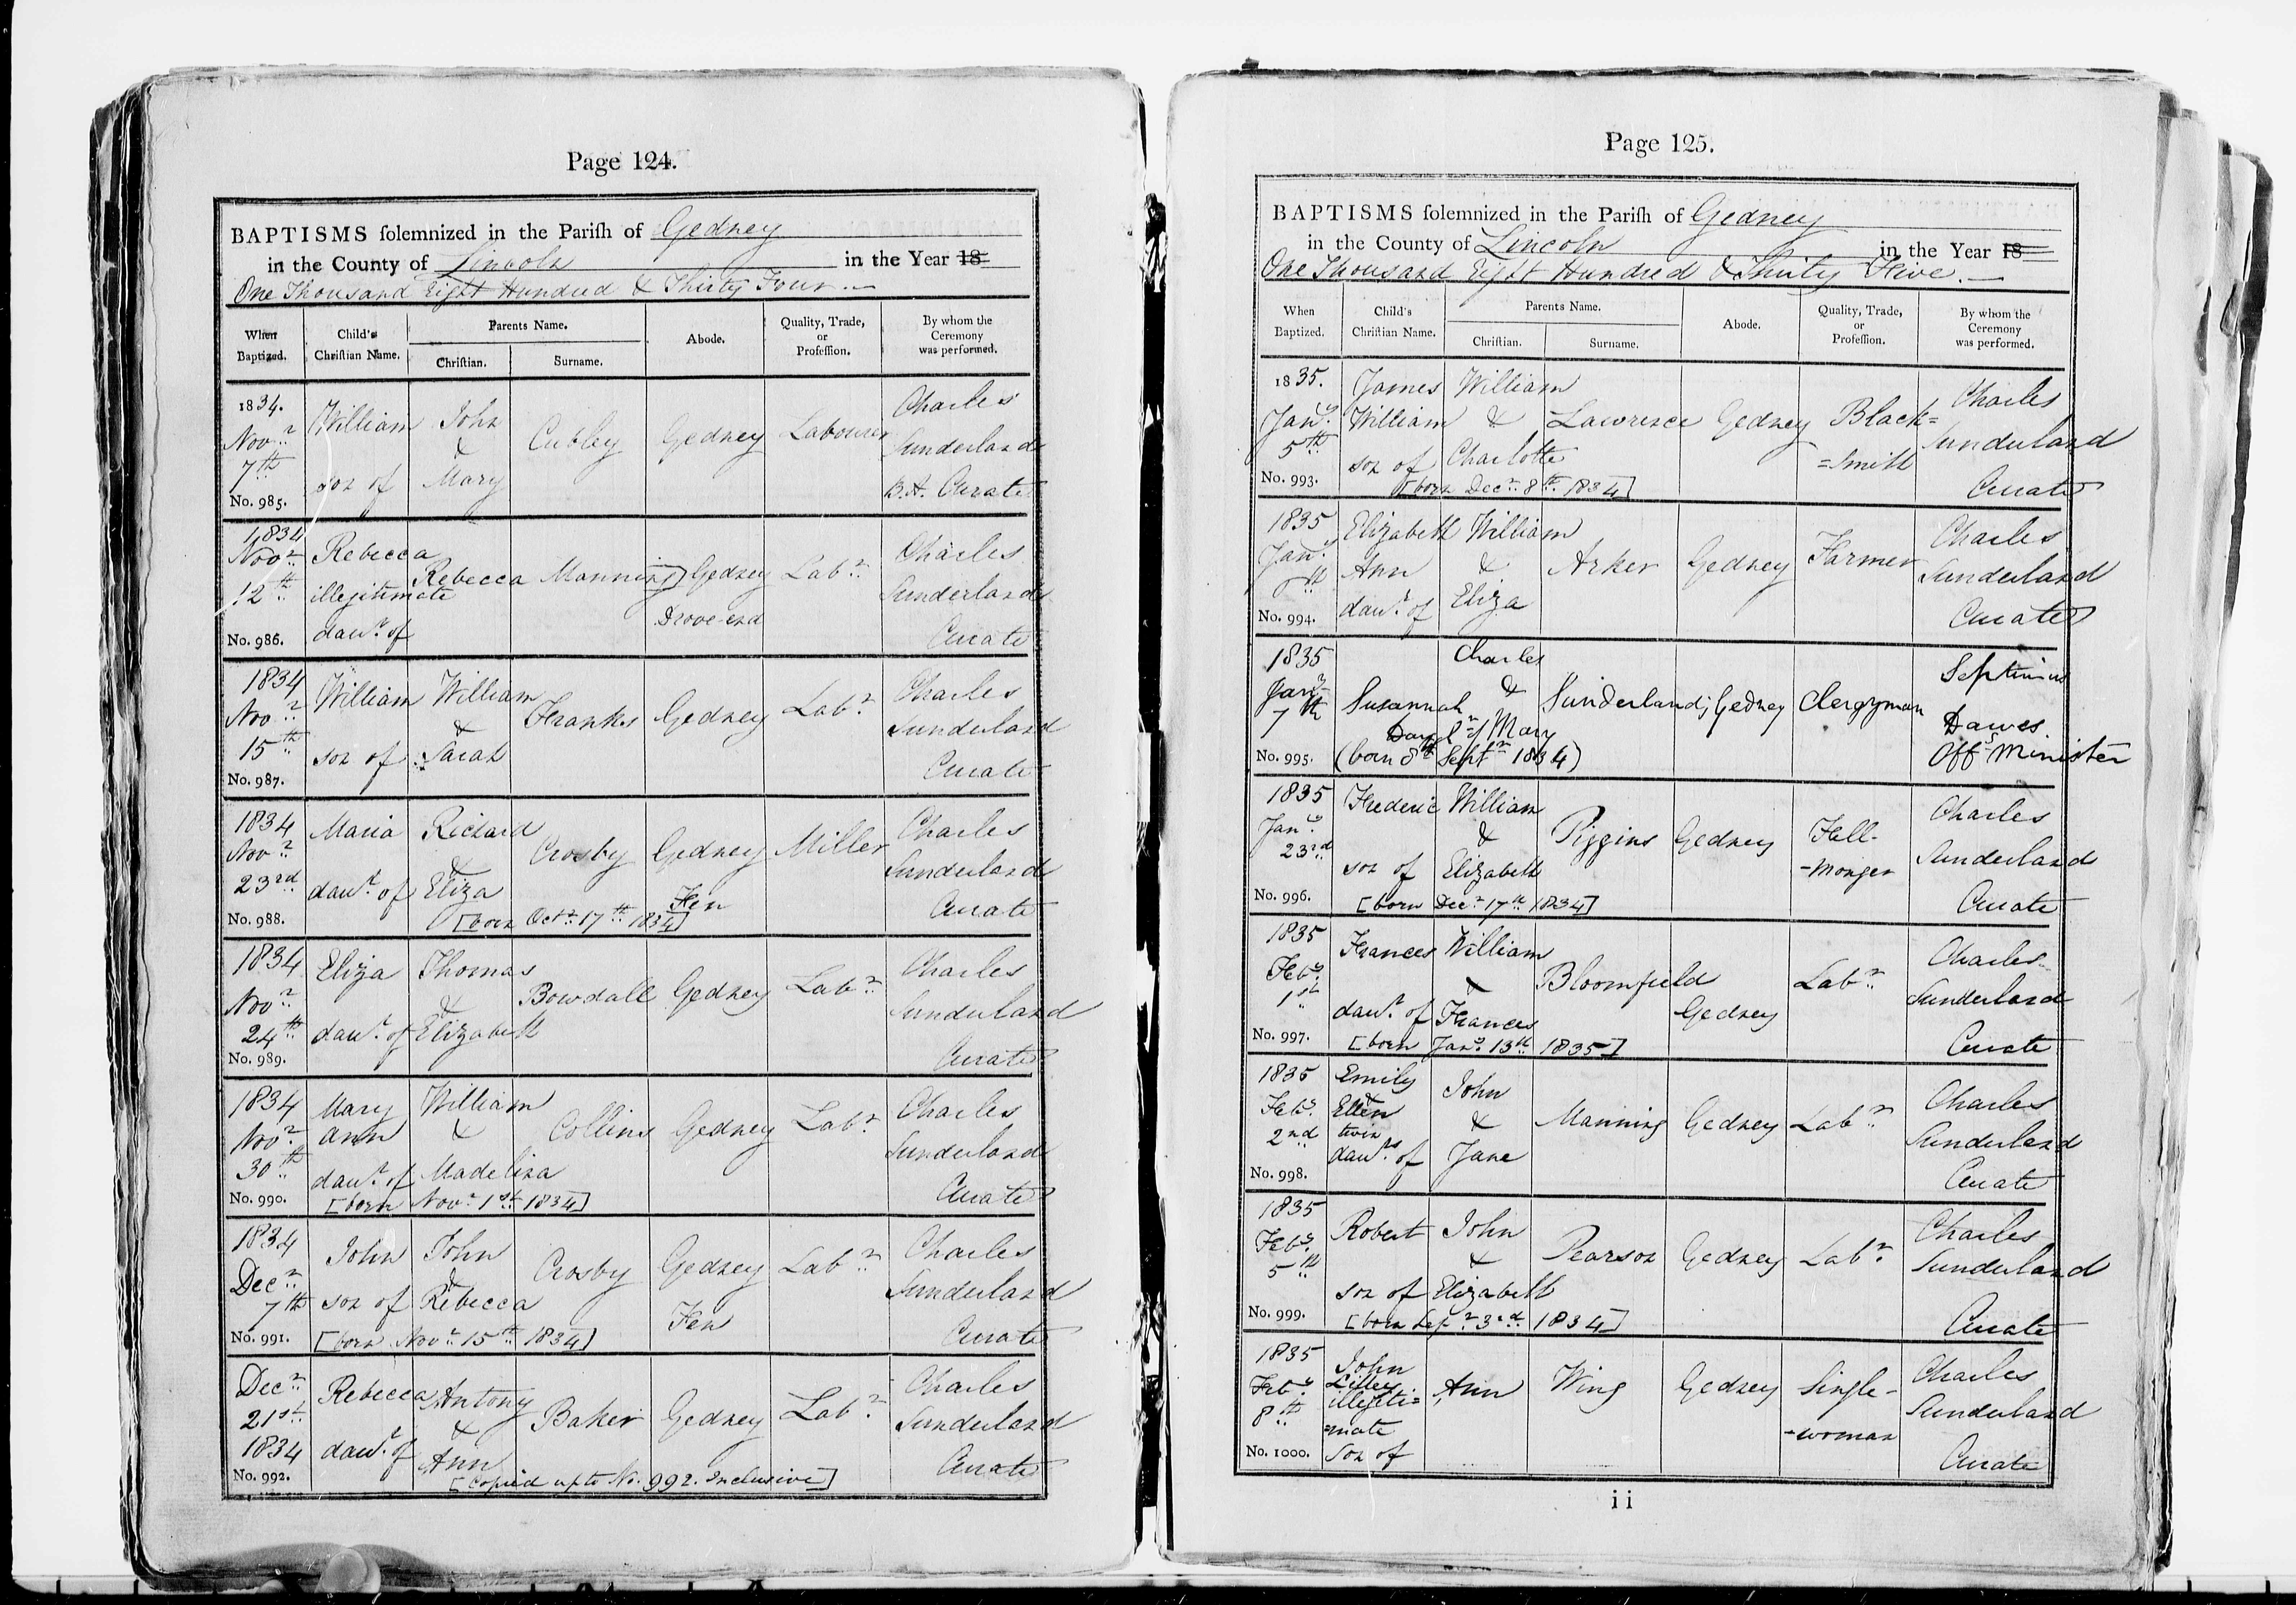 Page 124.
BAPTISMS solemnized in the Parish of Gedney
in the County of Lincoln in the Year 18
One Thousand Eight Hundred & Thirty Four.—
When Baptized.
Child's Christian Name.
Parents Name.
Christian.
Surname.
Abode.
Quality, Trade, or Profession.
By whom the Ceremony was performed.
1834.
Novr
7th
No. 985.
William
son of
John
&
Mary
Cubley
Gedney
Labourer
Charles
Sunderland
B.A. Curate
1834
Novr
12th
No. 986.
Rebecca
illegitimate
daur. of
Rebecca
Manning
Gedney
Drove-end
Labr
Charles
Sunderland
Curate
1834
Novr
15th
No. 987.
William
son of
William
&
Sarah
Franks
Gedney
Labr
Charles
Sunderland
Curate
1834
Novr
23rd
No. 988.
Maria
daur. of
Richard
&
Eliza
Crosby
Gedney
Fen
Miller
Charles
Sunderland
Curate
[born Octr 17th 1834]
1834
Novr
24th
No. 989.
Eliza
daur. of
Thomas
&
Elizabeth
Bowdall
Gedney
Labr
Charles
Sunderland
Curate
1834
Novr
30th
No. 990.
Mary
Ann
daur. of
William
&
Madeliza
Collins
Gedney
Labr
Charles
Sunderland
Curate
[born Novr 1st 1834]
1834
Decr
7th
No. 991.
John
son of
John
&
Rebecca
Crosby
Gedney
Fen
Labr
Charles
Sunderland
Curate
[born Novr 15th 1834]
Decr
21st
1834
No. 992.
Rebecca
daur. of
Antony
&
Ann
Baker
Gedney
Labr
Charles
Sunderland
Curate
[Copied up to No. 992. Inclusive]
Page 125.
BAPTISMS solemnized in the Parish of Gedney
in the County of Lincoln in the Year 18
One Thousand Eight Hundred & Thirty Five.—
When Baptized.
Child's Christian Name.
Parents Name.
Christian.
Surname.
Abode.
Quality, Trade, or Profession.
By whom the Ceremony was performed.
1835.
Jany
5th
No. 993.
James
William
son of
William
&
Charlotte
Lawrence
Gedney
Black=
=smith
Charles
Sunderland
Curate
[born Decr 8th 1834]
1835
Jany
No. 994.
Elizabeth
Ann
daur. of
William
&
Eliza
Arker
Gedney
Farmer
Charles
Sunderland
Curate
1835
Jany
7th
No. 995.
Susannah
Daugr of
Charles
&
Mary
Sunderland;
Gedney
Clergyman
Septimus
Dawes
Offg Minister
(born 8th Septr 1834)
1835
Jany
23rd
No. 996.
Frederic
son of
William
&
Elizabeth
Piggins
Gedney
Fell-
-monger
Charles
Sunderland
Curate
[born Decr 17th 1834]
1835
Feby
1st
No. 997.
Frances
daur. of
William
&
Frances
Bloomfield
Gedney
Labr
Charles
Sunderland
Curate
[born Jany 13th 1835]
1835
Feby
2nd
No. 998.
Emily
&
Ellen
twin
daurs of
John
&
Jane
Manning
Gedney
Labr
Charles
Sunderland
Curate
1835
Feby
5th
No. 999.
Robert
son of
John
&
Elizabeth
Pearson
Gedney
Labr
Charles
Sunderland
Curate
[born Sepr 3rd 1834]
1835
Feby
8th
No. 1000.
John
Lilley
illegiti=
=mate
son of
Ann
Wing
Gedney
Single-
-woman
Charles
Sunderland
Curate
ii